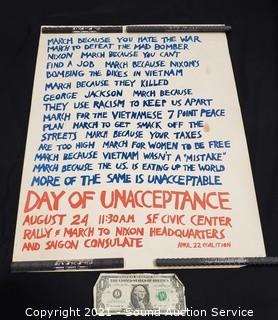 MARCH BECAUSE YOU HATE THE WAR
MARCH TO DEFEAT THE MAD BOMBER
NIXON MARCH BECAUSE YOU CAN'T
FIND A JOB MARCH BECAUSE NIXON'S
BOMBING THE DIKES IN VIETNAM
MARCH BECAUSE THEY KILLED
GEORGE JACKSON MARCH BECAUSE
THEY USE RACISM TO KEEP US APART
MARCH FOR THE VIETNAMESE 7 POINT PEACE
PLAN MARCH TO GET SMACK OFF THE
STREETS MARCH BECAUSE YOUR TAXES
ARE TOO HIGH MARCH FOR WOMEN TO BE FREE
MARCH BECAUSE VIETNAM WASN'T A "MISTAKE"
MARCH BECAUSE THE U.S. IS EATING UP THE WORLD
MORE OF THE SAME IS UNACCEPTABLE
DAY OF UNACCEPTANCE
AUGUST 24 11:30AM SF CIVIC CENTER
RALLY & MARCH TO NIXON HEADQUARTERS
AND SAIGON CONSULATE APRIL 22 COALITION
Copyright 2021 - Sound Auction Service